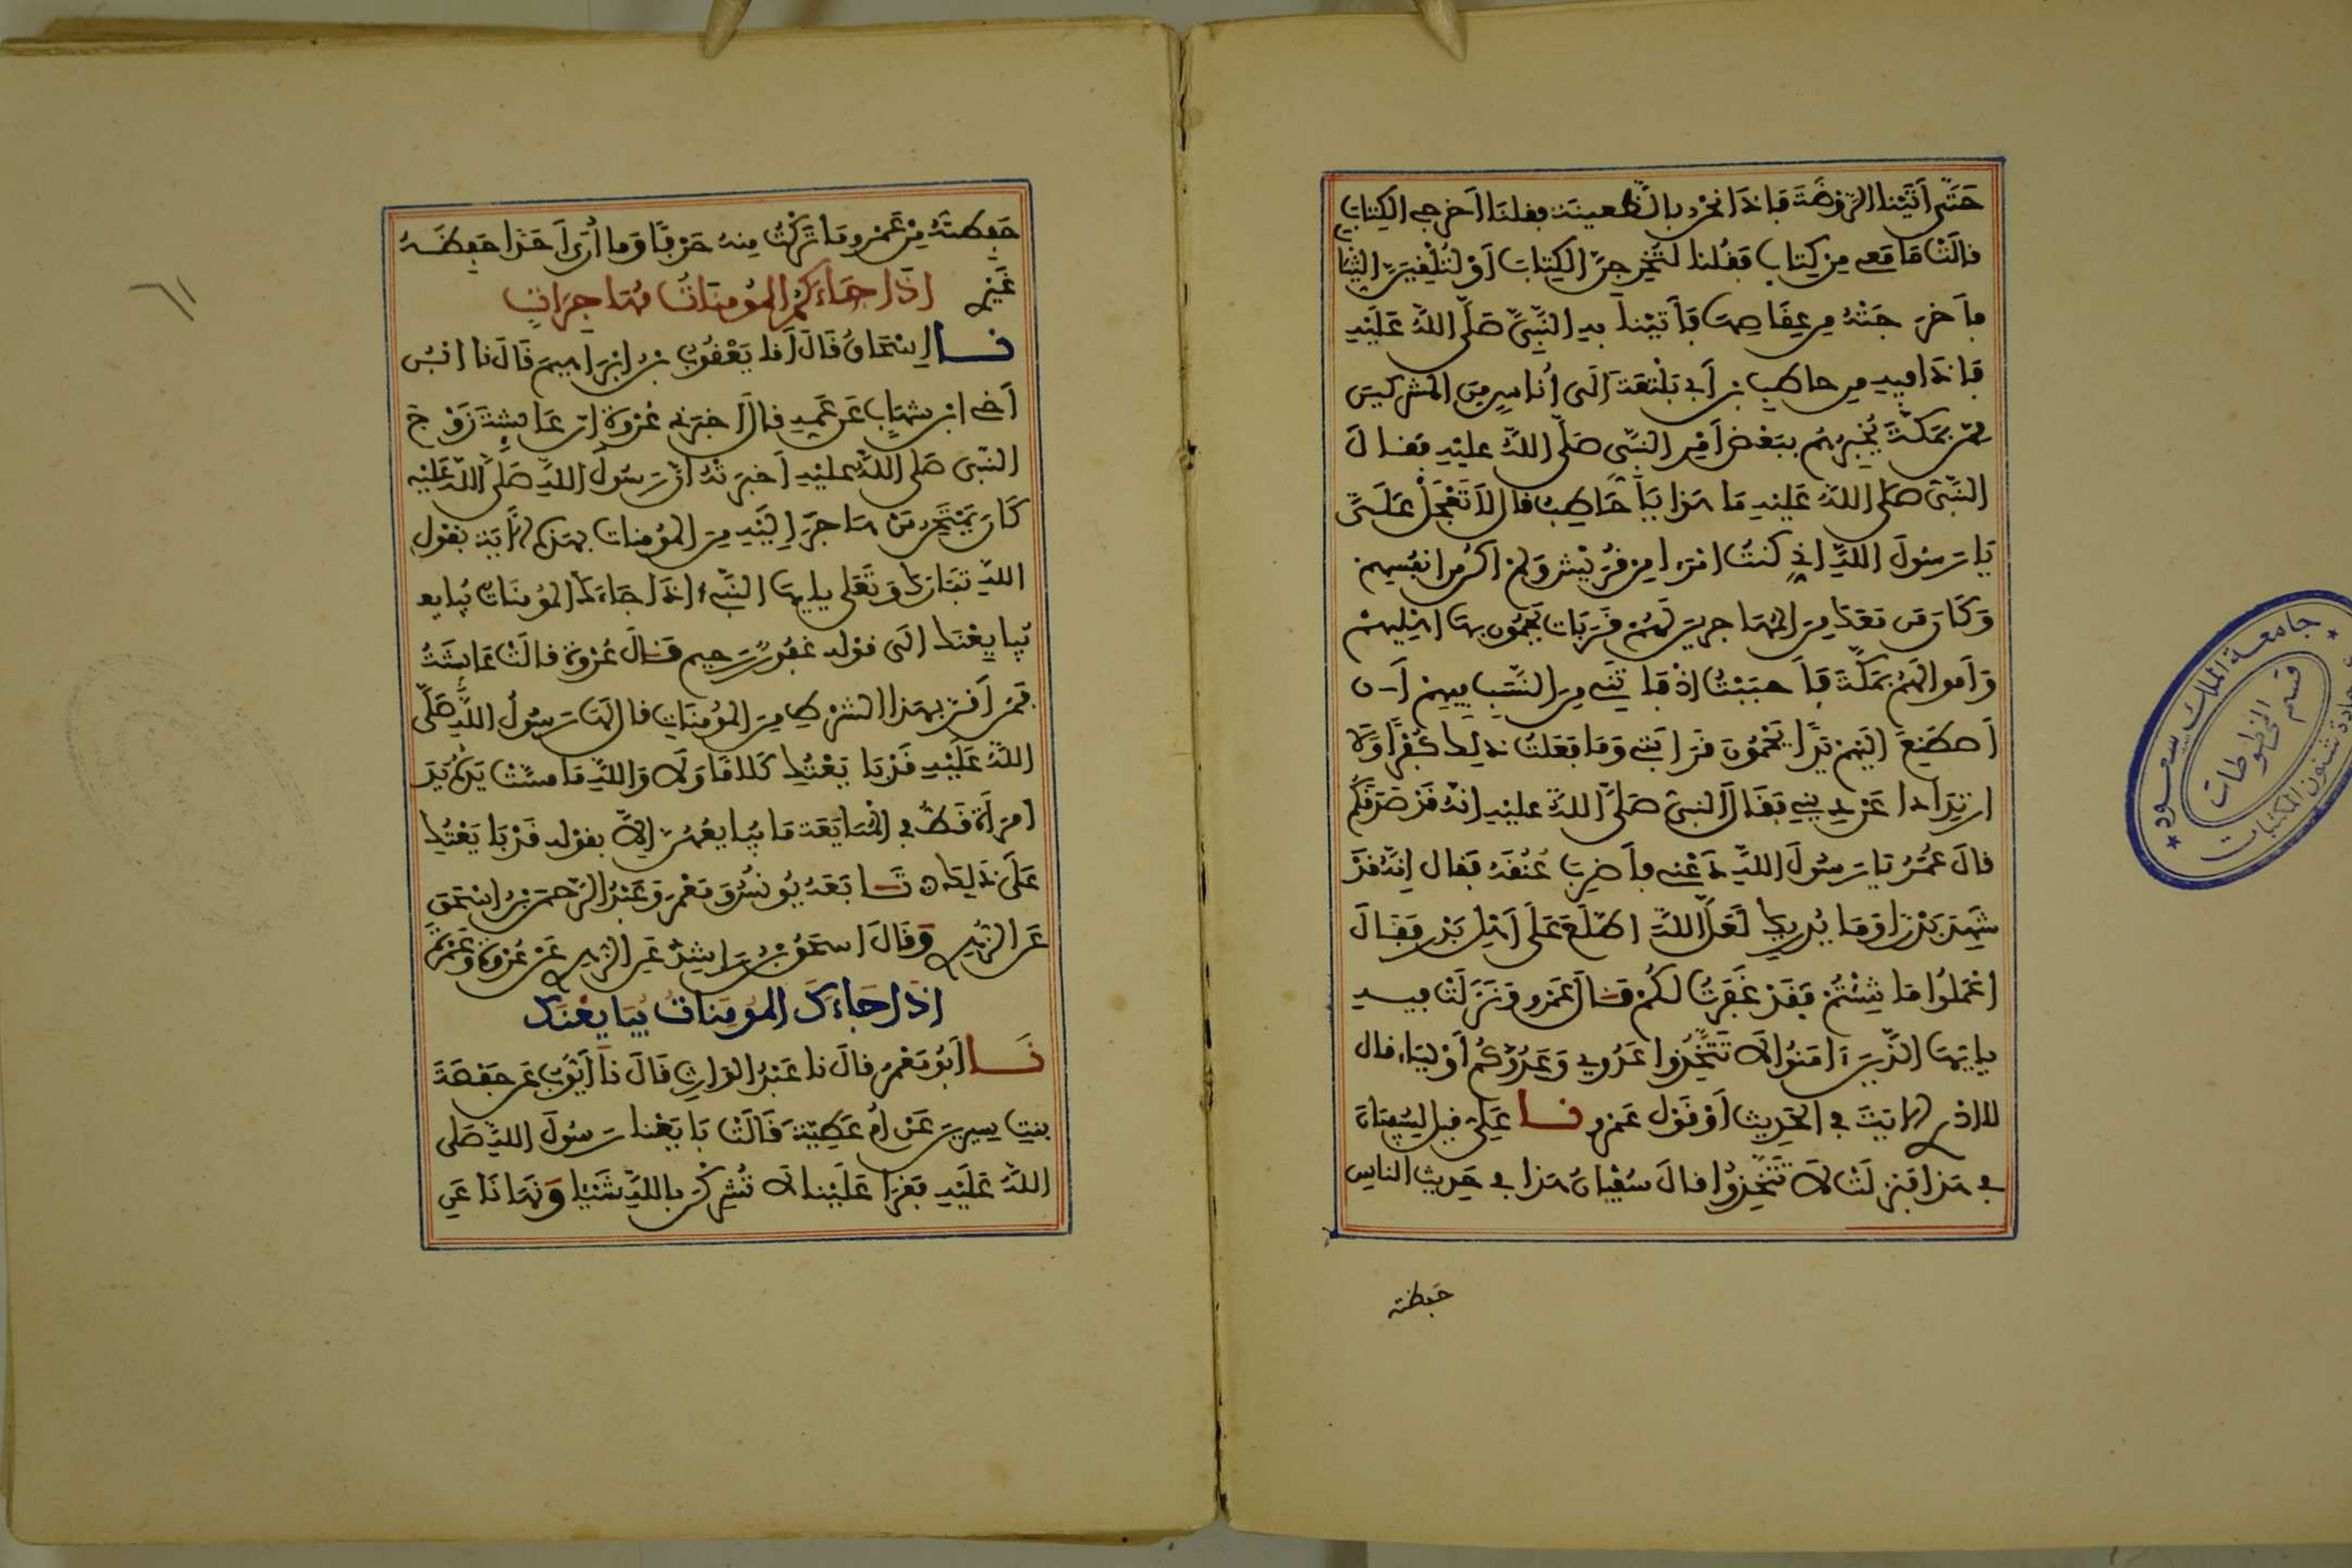 حَتَّى أَتَيْنَا الرَّوْضَةَ فَإِذَا نَحْنُ بِالظَّعِينَةِ فقلنَا أَخرِجِي الكِتَابَ
قالَتْ مَا مَعِي مِن كِتَابٍ فَقُلنا لَتُخْرِجِنَّ الكِتَابَ أَوْ لَتُلْقِيَنَّ الثِّيَابَ
فأَخرَجَتْهُ مِن عِقَاصِهَا فَأَتَيْنَا بِهِ النَّبِيَّ صَلَّى اللهُ عَلَيْهِ
فَإِذَا فِيهِ مِن حاطِبِ بن أَبِي بَلْتَعَةَ إلَى أُنَاسٍ مِنَ المشركينَ
مِمَّن بِمَكَّةَ يُخْبِرُهُم بِبَعْضِ أَمْرِ النَّبِيِّ صَلَّى اللهُ عليْهِ فقالَ
النَّبِيُّ صَلَّى اللهُ عَلَيْهِ مَا هَذَا يَا حَاطِبُ قال لاَ تَعْجَلْ عَلَيَّ
يَا رَسُولَ اللهِ إني كنتُ امْرَءا مِن قُرَيْشٍ وَلَمْ أكُن مِن أنفُسِهِمْ
وَكَانَ مَن مَعَكَ مِنَ المُهَاجِرِينَ لَهُمْ قَرَبَات يَحْمُونَ بِهَا أَهْلِيهِمْ
وَأَموالَهُمْ بِمَكَّةَ فَأَحبَبْتُ إِذْ فَاتَنِي مِنَ النَّسَبِ فِيهِمْ أَن
أَصْطَنِعَ إِلَيْهِمْ يَدًا يَحْمُونَ قَرَابَتِي وَمَا فَعَلتُ ذَلِكَ كُفْرًا وَلاَ
ارتِدَادا عَن دِينِي فقَالَ النبيُّ صَلَّى اللهُ عليْهِ إنَّهُ قَدْ صَدَقَكُمْ
قالَ عُمَرُ يَا رَسُولَ اللهِ دَعْنِي فأَضْرِبَ عُنُقَهُ فقال إِنَّهُ قَدْ
شَهِدَ بَدْرًا وَمَا يُدْرِيكَ لَعَلَّ اللهَ اطَّلَعَ عَلَى أَهْلِ بَدْرٍ فَقَالَ
اعْمَلُوا مَا شِئْتُمْ فَقَدْ غَفَرْتُ لَكُمْ قَالَ عَمْرو وَنَزَلَتْ فيه
يا أيها الذِينَ آمَنُوا لاَ تَتَّخِذُوا عَدُوِّي وَعَدُوَّكُمْ أَوْلِيَاءَ قال
لا أدري الآيَةَ فِي الحَدِيثِ أَوْ قَوْل عَمْرو نا عَلِيٌّ قيل لِسُفْيَانَ
فِي هَذَا فَنزلَتْ لاَ تَتَّخِذُوا قالَ سُفْيَانُ هَذَا فِي حَدِيثِ الناسِ
حفظته
حَفِظْتُهُ مِنْ عَمْرو مَا تَرَكْتُ مِنْهُ حَرْفًا وَمَا أُرَى أَحَدًا حَفِظَهُ
غَيْرِي إِذَا جَاءَكُمُ المُومِنَاتُ مُهَاجِرَاتٍ
نا إِسْحَاقُ قَالَ أَنا يَعْقُوبُ بنُ إِبْرَاهِيمَ قَالَ نا ابْنُ
أَخِي ابنِ شِهَابٍ عَن عَمِّهِ قالَ أَخبَرَنِي عُرْوَةُ أن عَائِشَةَ زَوْجَ
النبيِّ صَلَّى اللهُ عليْهِ أَخبَرَتْهُ أنَّ رَسُولَ اللهِ صَلَّى اللهُ عَلَيْهِ
كَانَ يَمْتَحِنُ مَنْ هَاجَرَ إِلَيْهِ مِنَ المُومِنَاتِ بهَذِهِ الآيَةِ بقَوْلِ
اللهِ تَبَارَكَ وَتَعَلى يا أيها النَّبِيءُ إذَا جَاءَكَ المُومِنَاتُ يُبَايِعـ
يُبَايِعْنَكَ إلَى قَوْلِهِ غَفُورٌ رَحِيم قَالَ عُرْوَةُ قالَتْ عَائِشَةُ
فَمَنْ أَقَرَّ بِهَذَا الشَّرْطِ مِنَ المُومِنَاتِ قالَ لَهَا رَسُولُ اللهِ صَلَّى
اللهُ عَلَيْهِ قَدْ بَايَعْتُكِ كَلاَمًا وَلاَ وَاللهِ مَا مَسَّتْ يَدُهُ يَدَ
امرَأَةٍ قَطُّ فِي المُبَايَعَةِ مَا يُبَايِعُهُنَّ إِلاَّ بقوْلِهِ قَدْ بَايَعْتُكِ
عَلَى ذَلِكِ تَابَعَهُ يُونُسُ وَمَعْمَرٌ وَعَبْدُ الرَّحمَنِ بْنُ إسْحَقَ
عَن الزُّهْرِيِّ وَقَالَ إسحَقُ بنُ رَاشِدٍ عَنِ الزُّهْرِيِّ عَنْ عُرْوَةَ وَعَمْرَةَ
إذَا جَاءَكَ المُومِنَاتُ يُبَايِعْنَكَ
نَا أَبُو مَعْمَرٍ قالَ نا عَبْدُ الوَارِثِ قَالَ نَا أَيُّوبُ عَن حَفْصَةَ
بِنْتِ سِيرِينَ عَنْ أُمِّ عَطِيَّةَ قَالَتْ بَايَعْنَا رَسُولَ اللهِ صَلَّى
اللهُ عَلَيْهِ فَقَرَأَ عَلَيْنَا أَلاَّ تُشْرِكْنَ بِاللهِ شَيْئًا وَنَهَانَا عَنِ
جامعة الملك سعود
قسم المخطوطات
عمادة شئون المكتبات